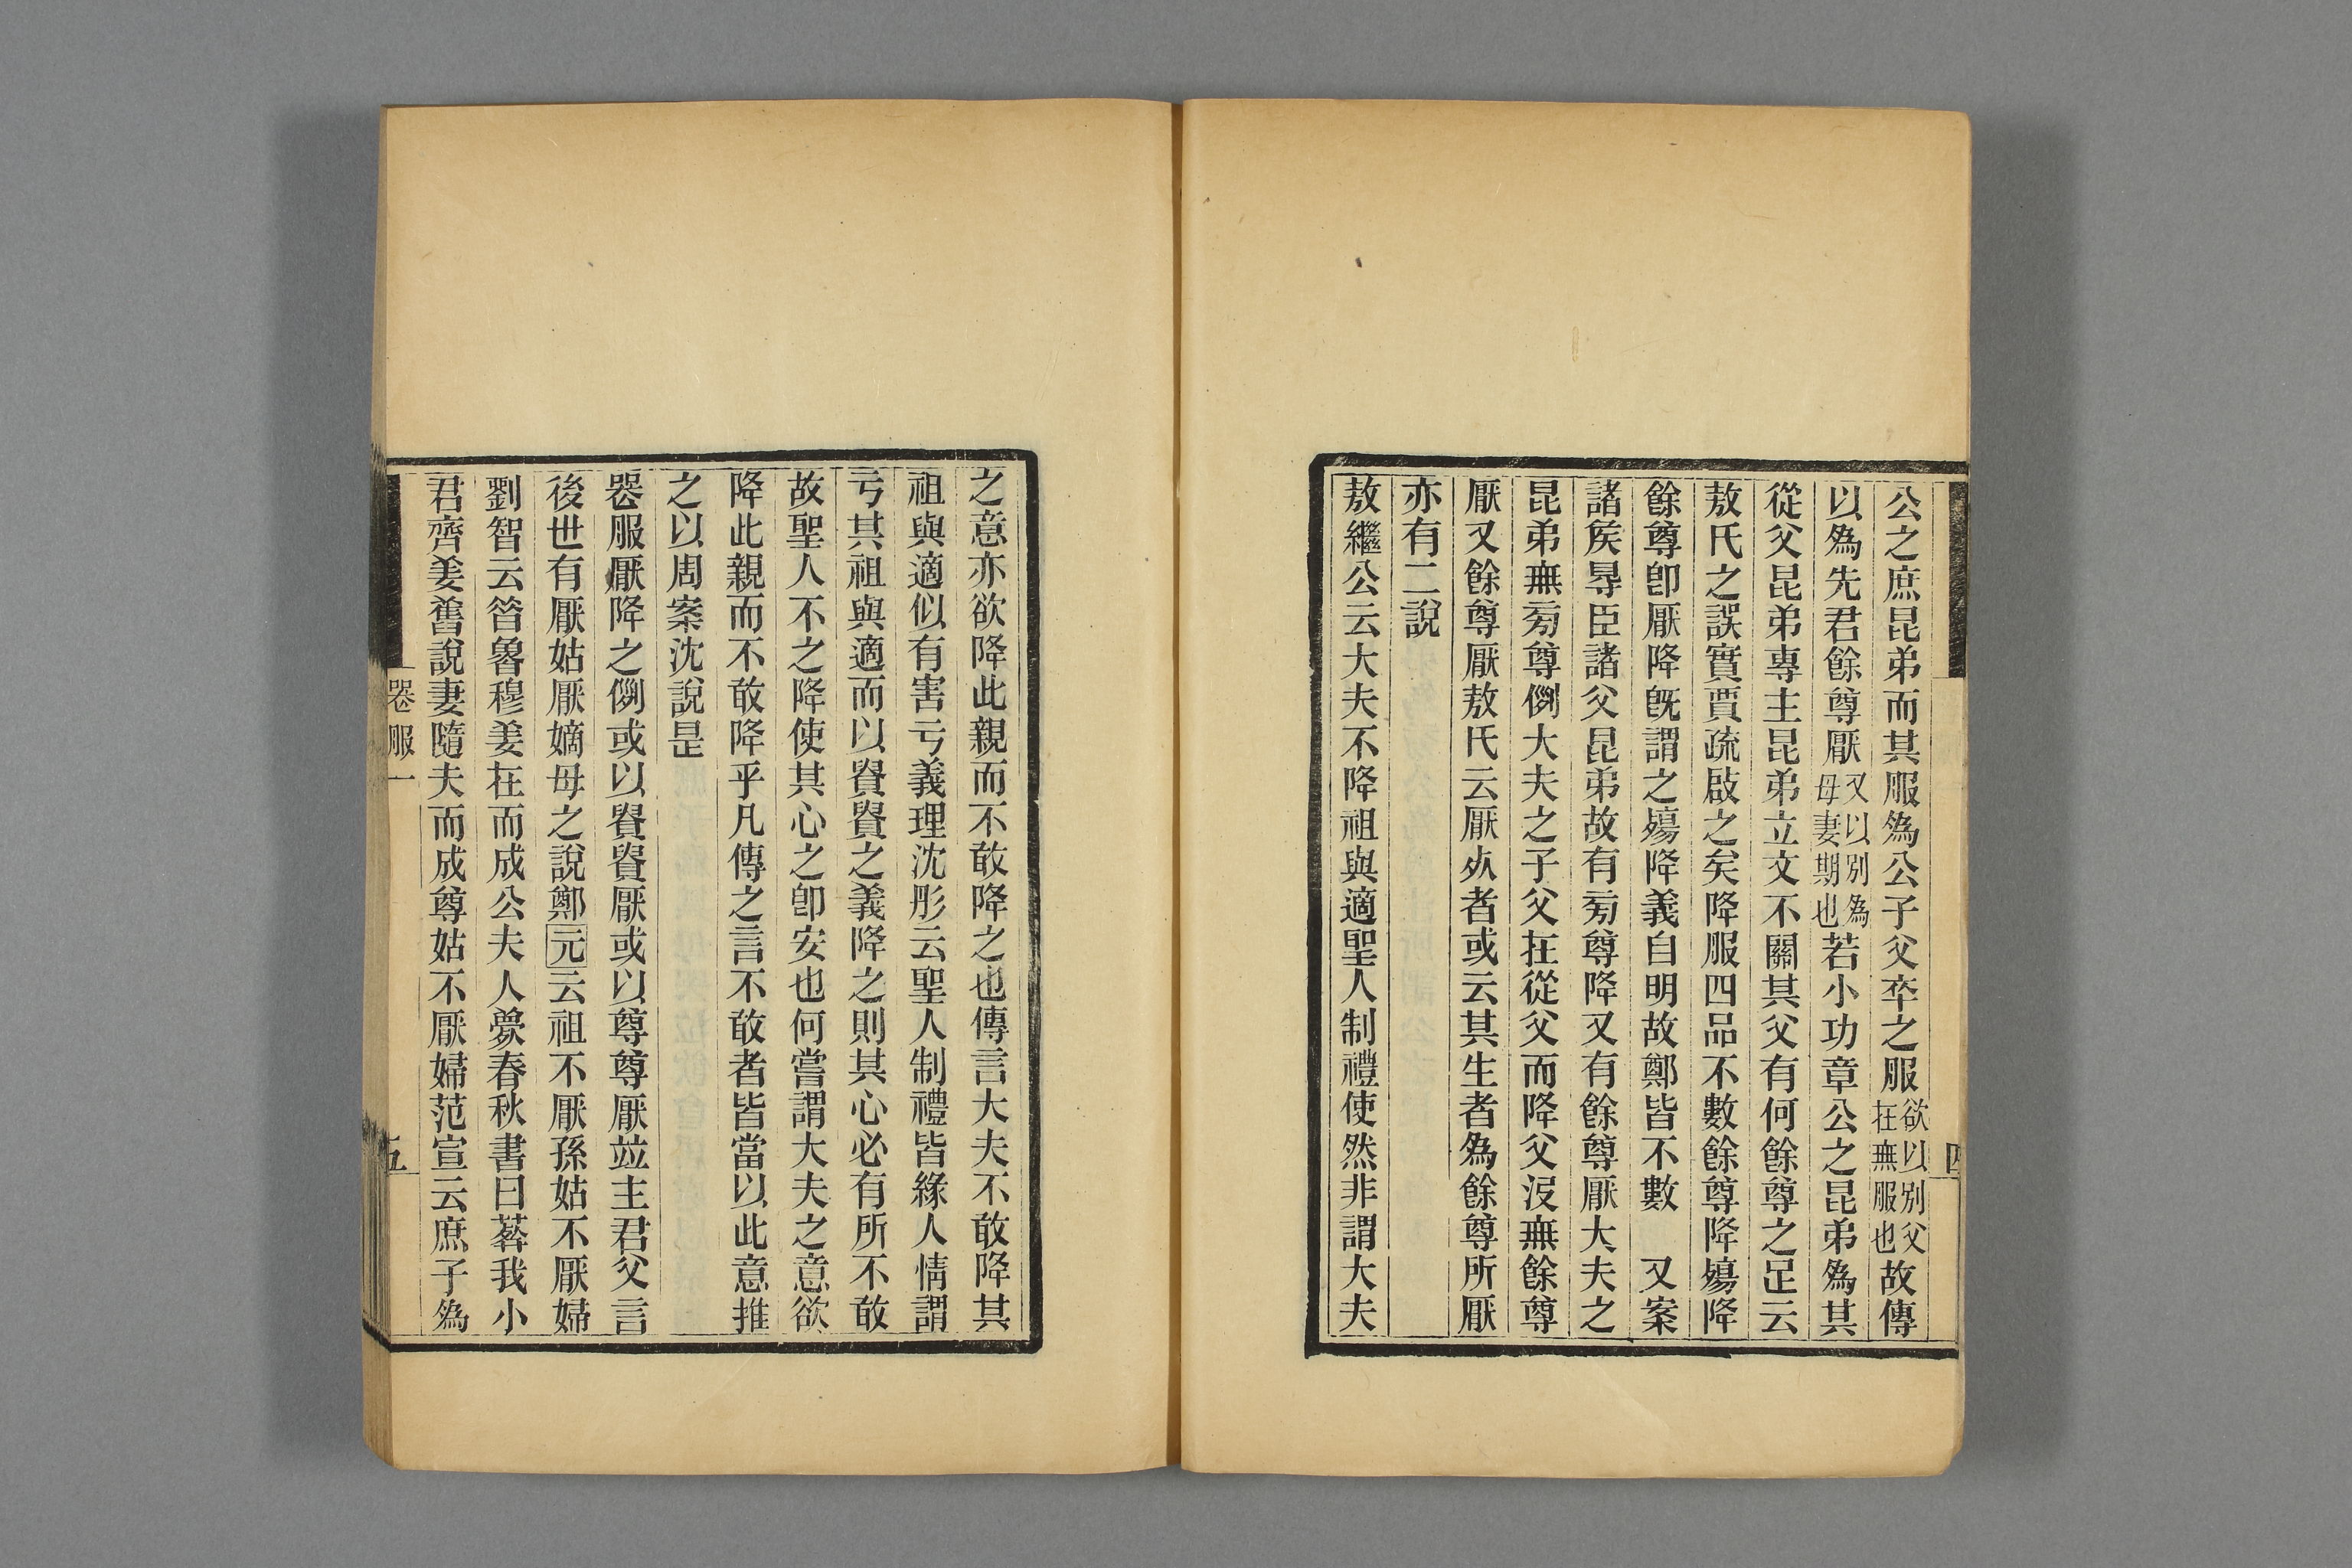 公之庶昆弟而其服為公子父卒之服欲以別父在無服也故傳
以為先君餘尊厭又以別為母妻期也若小功章公之昆弟為其
從父昆弟專主昆弟立文不關其父有何餘尊之足云
敖氏之誤實賈疏啟之矣降服四品不數餘尊降殤降
餘尊卽厭降旣謂之殤降義自明故鄭皆不數　又案
諸矦㝵臣諸父昆弟故有㫄尊降又有餘尊厭大夫之
昆弟無㫄尊例大夫之子父在從父而降父沒無餘尊
厭又餘尊厭敖氏云厭㱁者或云其生者為餘尊所厭
亦有二說
敖繼公云大夫不降祖與適聖人制禮使然非謂大夫
四
之意亦欲降此親而不敢降之也傳言大夫不敢降其
祖與適似有害亏義理沈彤云聖人制禮皆緣人情謂
亏其祖與適而以貴貴之義降之則其心必有所不敢
故聖人不之降使其心之卽安也何嘗謂大夫之意欲
降此親而不敢降乎凡傳之言不敢者皆當以此意推
之以周案沈說是
喪服厭降之例或以貴貴厭或以尊尊厭竝主君父言
後世有厭姑厭嫡母之說鄭元云祖不厭孫姑不厭婦
劉智云昔魯穆姜在而成公夫人薨春秋書曰葬我小
君齊姜舊說妻隨夫而成尊姑不厭婦范宣云庶子為
喪服一
五